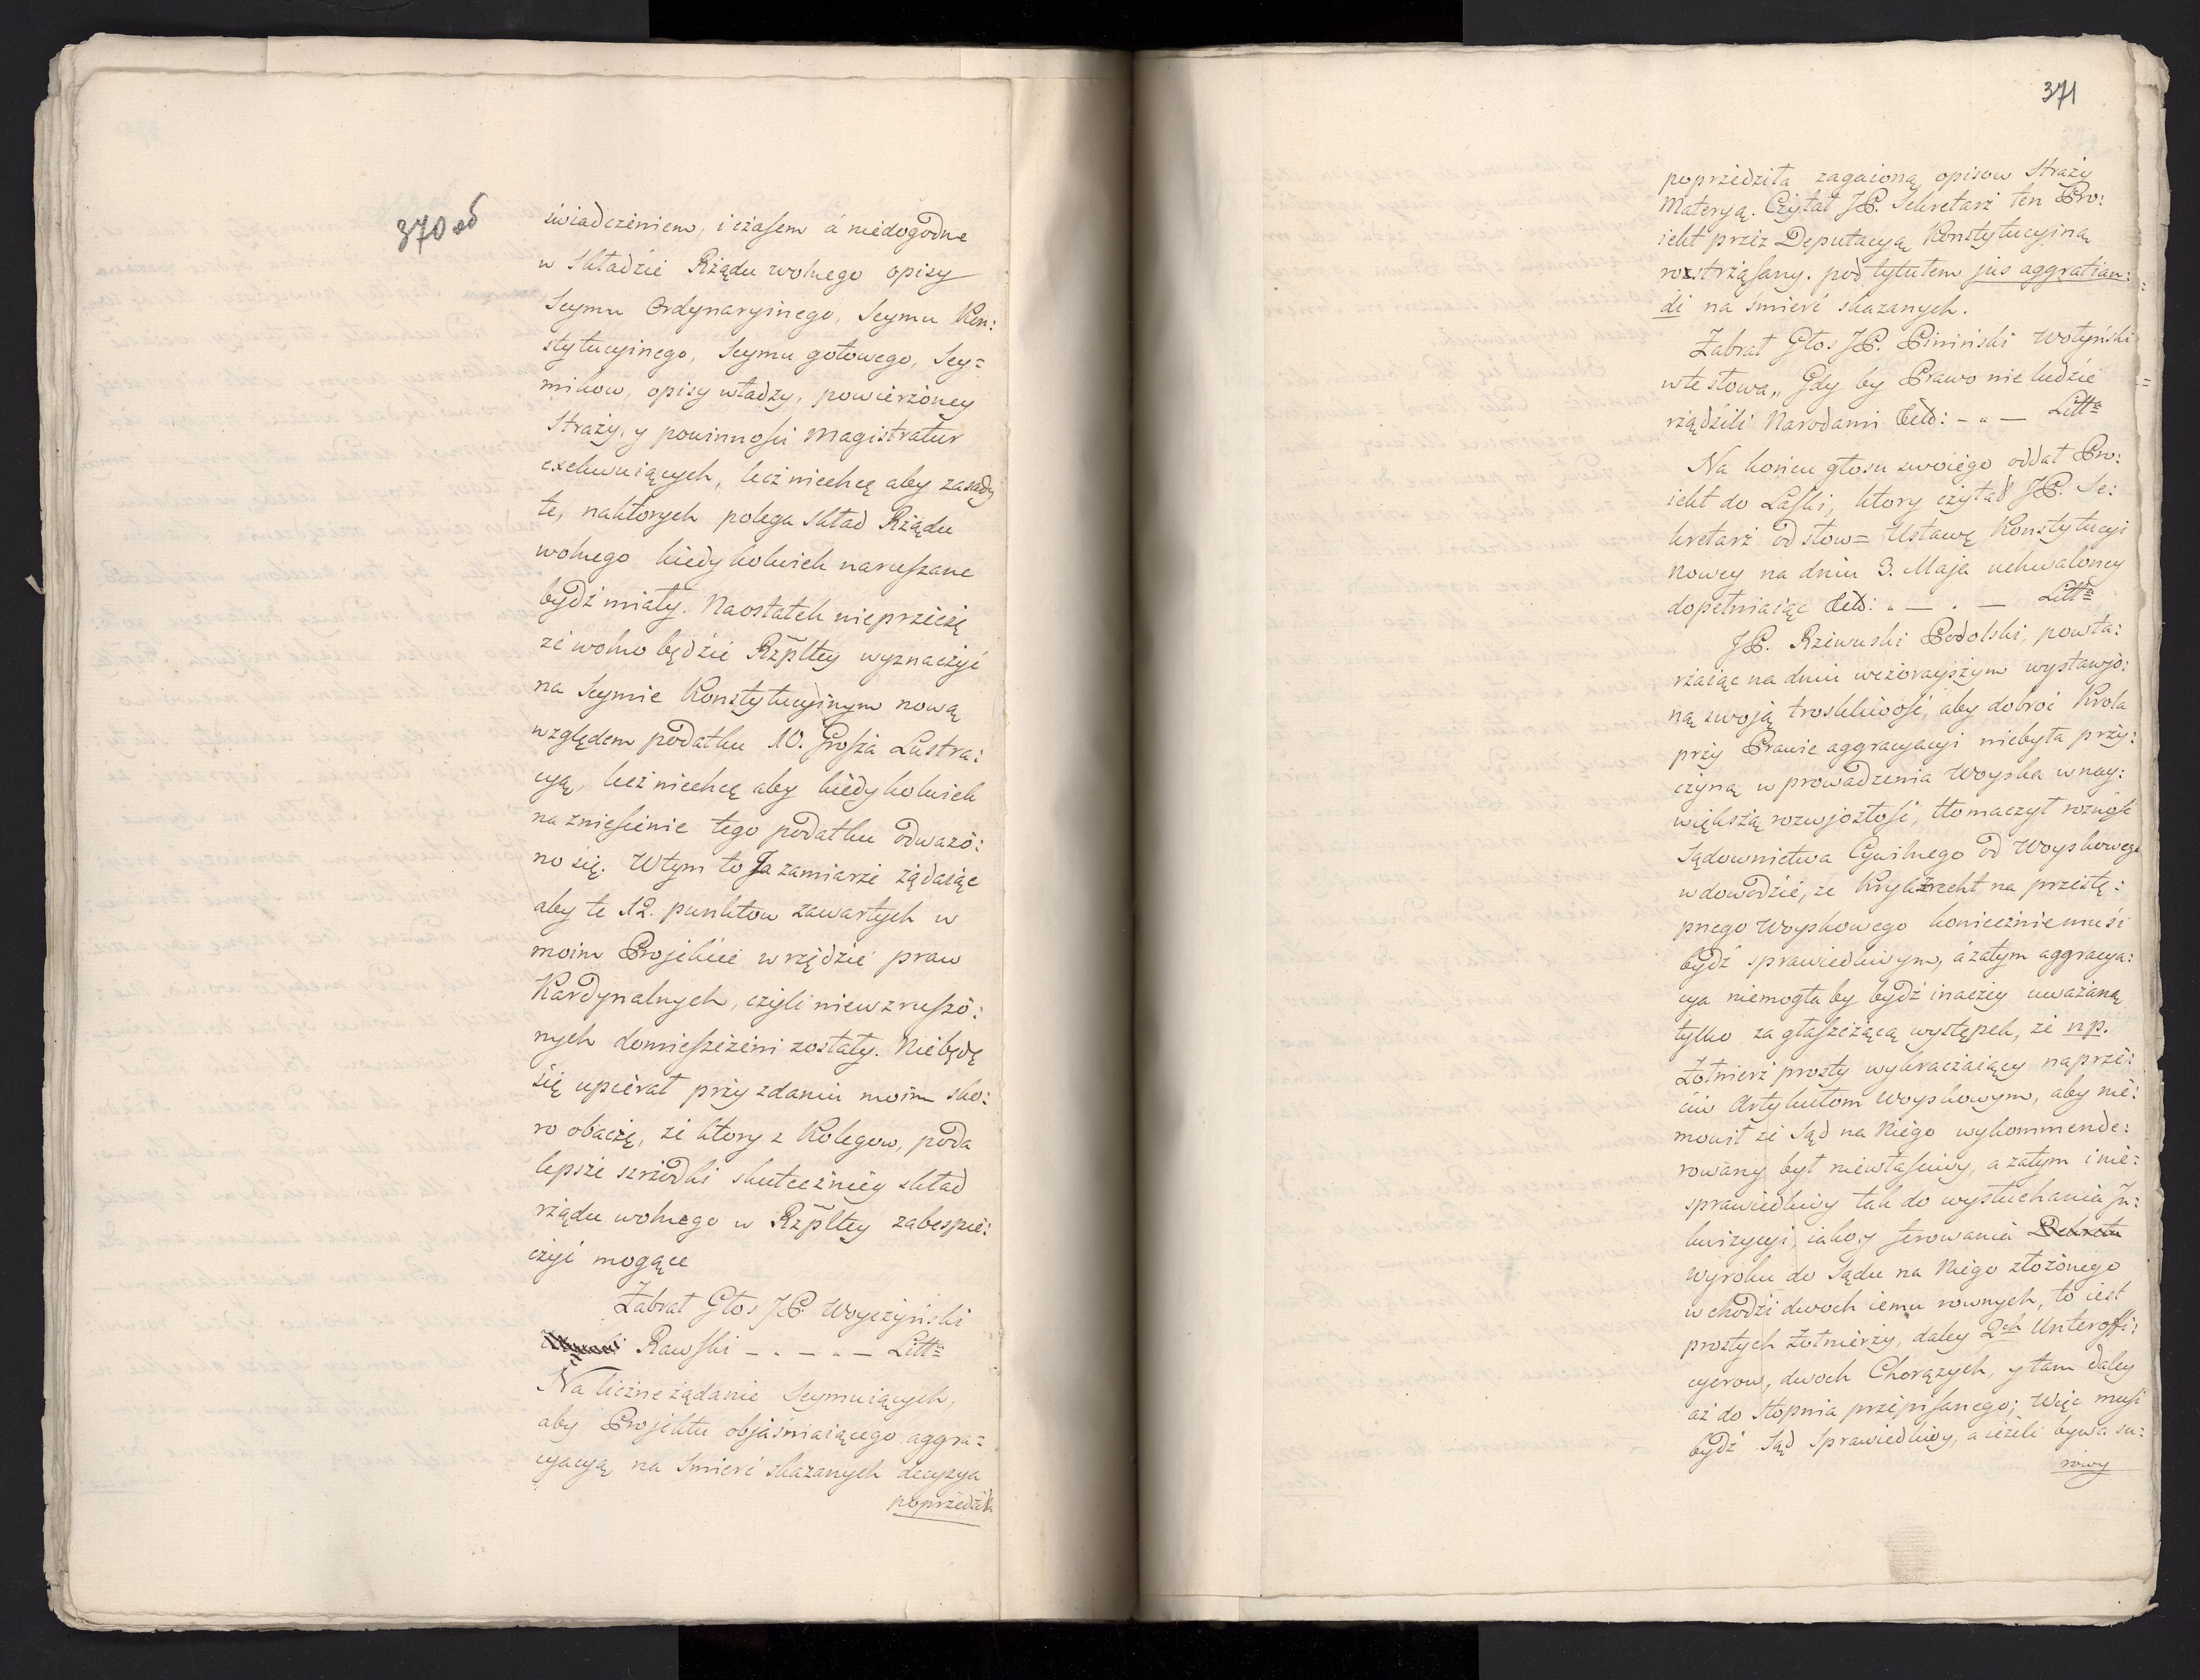 370 об
swiadczeniem, i czasem á niedogodne
w Składzie Rządu wolnego opisy
Seymu Ordynaryinego, Seymu Kon:
stytucyinego, Seymu gotowego, Sey=
mikow, opisy władzy, powierzoney
Straży, y powinnosci Magistratur
exekwuiących, lecz niechcę aby zasady
te, naktorych polega skład Rządu
wolnego kiedykolwiek naruszane
bydź miały. Naostatek nieprzeczę
że wolno będzie Rzpltey wyznaczyć
na Seymie Konstytucyinym nową
względem podatku 10. Grosza Lustra:
cyą, lecz niechcę aby kiedykolwiek
na zniesienie tego podatku odważo:
no się. Wtym to Ja zamiarze żądaiąc
aby te 12. punktow zawartych w
moim Projekcie w rzędzie praw
Kardynalnych, czyli niewzruszo:
nych domieszczeni zostały. Niebędę
się upierał przy zdaniu moim sko:
ro obaczę, że ktory z Kolegow, poda
lepsze szrzodki skuteczniey skład
rządu wolnego w Rzpltey zabespie:
czyć mogące
Zabrał Głos JP. Woyczyński
Rawski – . – . . – Litt=
Na liczne żądanie Seymuiących,
aby Projektu objaśniaiącego aggra=
cyacyą na Smierć skazanych decyzya
poprzedziła
371
poprzedziła zagaioną opisow Straży
Materyą. Czytał JP. Sekretarz ten Pro:
iekt przez Deputacyą Konstytucyiną
roztrząsany. pod tytułem jus aggratian:
di na smierć skazanych.
Zabrał Głos JP. Pininski Wołyński
wte słowa „ Gdy by Prawo nie ludzie
rządzili Narodami &c: – „ – Litta=
Na końcu głosu swoiego oddał Pro:
iekt do Laski, ktory czytał JP. Se:
kretarz od słow = Ustawę Konstytucyi
nowey na dniu 3. Maja uchwaloney
dopełniaiąc &c: „ – . – Litta=
JP. Rzewuski Podolski, powta:
rzaiąc na dniu wczorayszym wystawjo:
ną swoją troskliwość, aby dobroć Krola
przy Prawie aggracyacyi niebyła przy:
czyną w prowadzenia Woyska w nay:
większą rozwjozłość, tłomaczył rożność
Sądownictwa Cywilnego od Woyskowego
w dowodzie, że Krygzrecht na przestę:
pnego Woyskowego koniecznie musi
bydź sprawiedliwym, á zatym aggracya:
cya niemogła by bydź inaczey uważaną
tylko za głaszczącą występek, że np.
Żołnierz prosty wykraczaiący naprze:
ciw Artykułom woyskowym, aby nie:
mowił że Sąd na Niego wykommende:
rowany był niewłasciwy, a zatym i nie:
sprawiedliwy tak do wysłuchania In:
kwizycyi, iako y ferowania Dekretu
wyroku do Sądu na Niego złożonego
w chodzi dwoch iemu rownych, to iest
prostych Żołnierzy, daley 2ch Unteroffi:
cyerow, dwoch Chorążych, y tam daley
aż do Stopnia przepisanego; Więc musi
bydź Sąd Sprawiedliwy, a ieżeli bywa su:
rowy